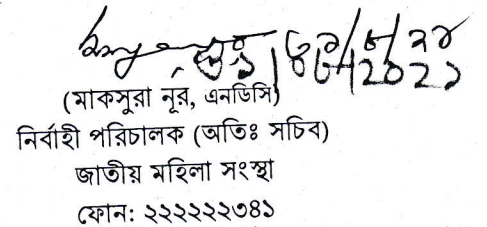 (মাকসুরা নূর, এনডিসি)
নির্বাহী পরিচালক (অতিঃ সচিব)
জাতীয় মহিলা সংস্থা
ফোন: ২২২২২২৩৪১